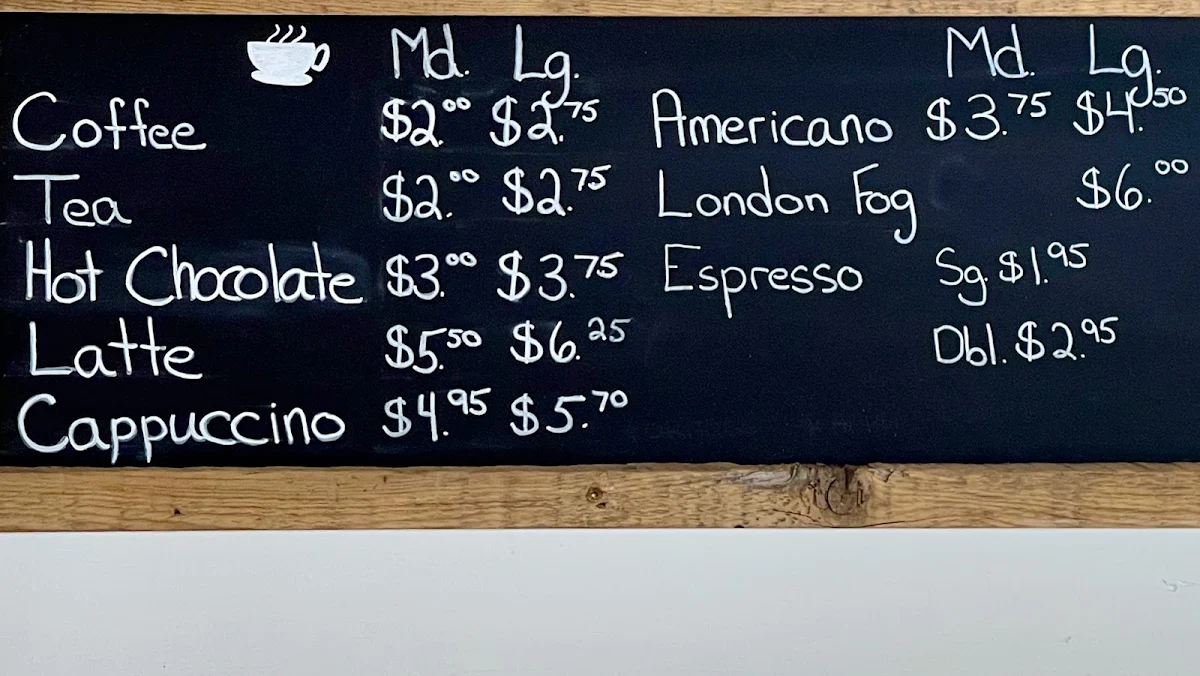 Md. Lg.
Coffee $2.00 $2.75
Tea $2.00 $2.75
Hot Chocolate $3.00 $3.75
Latte $5.50 $6.25
Cappuccino $4.95 $5.70
Md. Lg.
Americano $3.75 $4.50
London Fog $6.00
Espresso Sg. $1.95
Dbl. $2.95